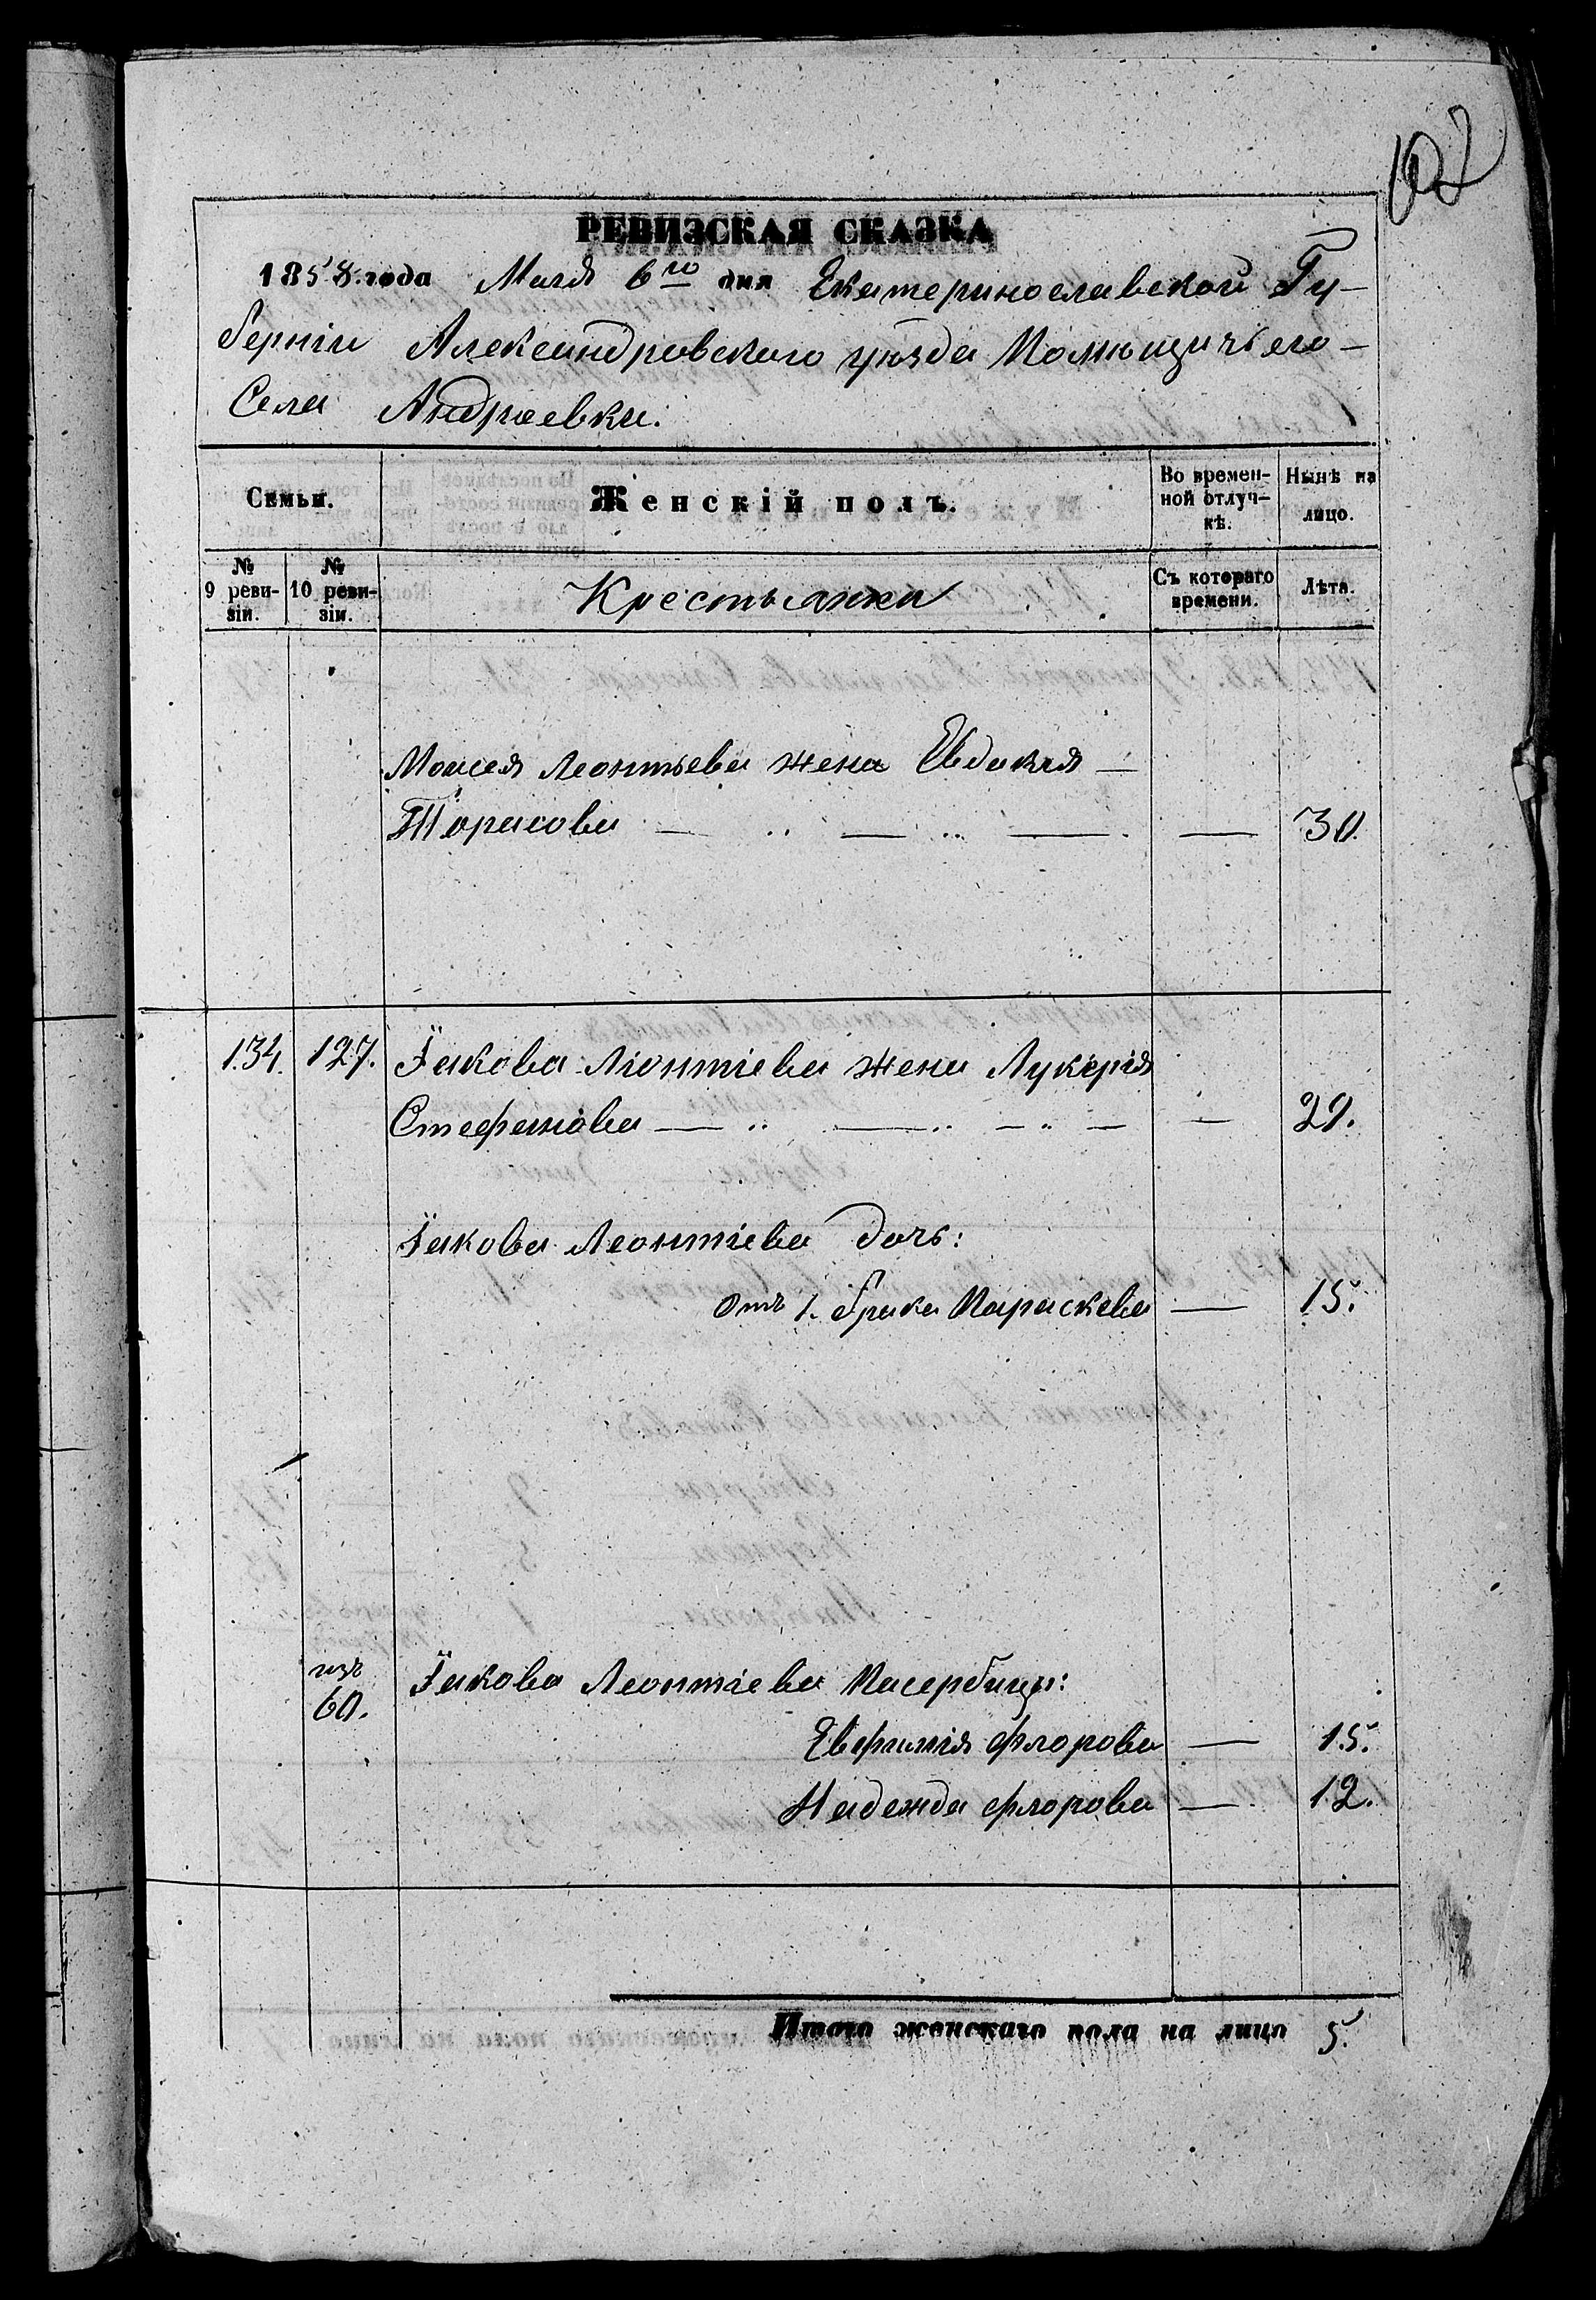 102
РЕВИЗСКАЯ СКАЗКА
1858 года Мая 6го дня Екатеринославской Гу-
берніи Александровскаго уѣзда Помѣщичьего
Села Андреевки.
Семьи.
Женскій полъ.
Во времен-
ной отлуч-
кѣ.
Нынѣ на
лицо.
№
9 реви-
зіи.
№
10 реви-
зіи.
Крестьянки
Съ котораго
времени.
Лѣта.
Моисея Леонтьева жена Евдокія —
Тарасова — 30.
134. 127. Іакова Ліонтіева жена Лукерія
Стефанова — 29.
Іакова Леонтіева дочь:
Отъ 1. брака Параскева — 15.
изъ
60. Іакова Леонтіева Пасербицы:
Евфимія Флорова — 15.
Надежда Флорова — 12.
Итого женскаго пола на лицо 5.